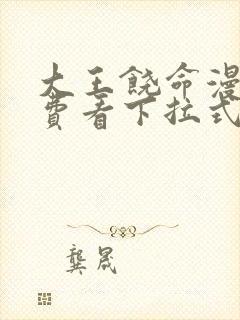 大王饶命漫
费看下拉式
龚晟